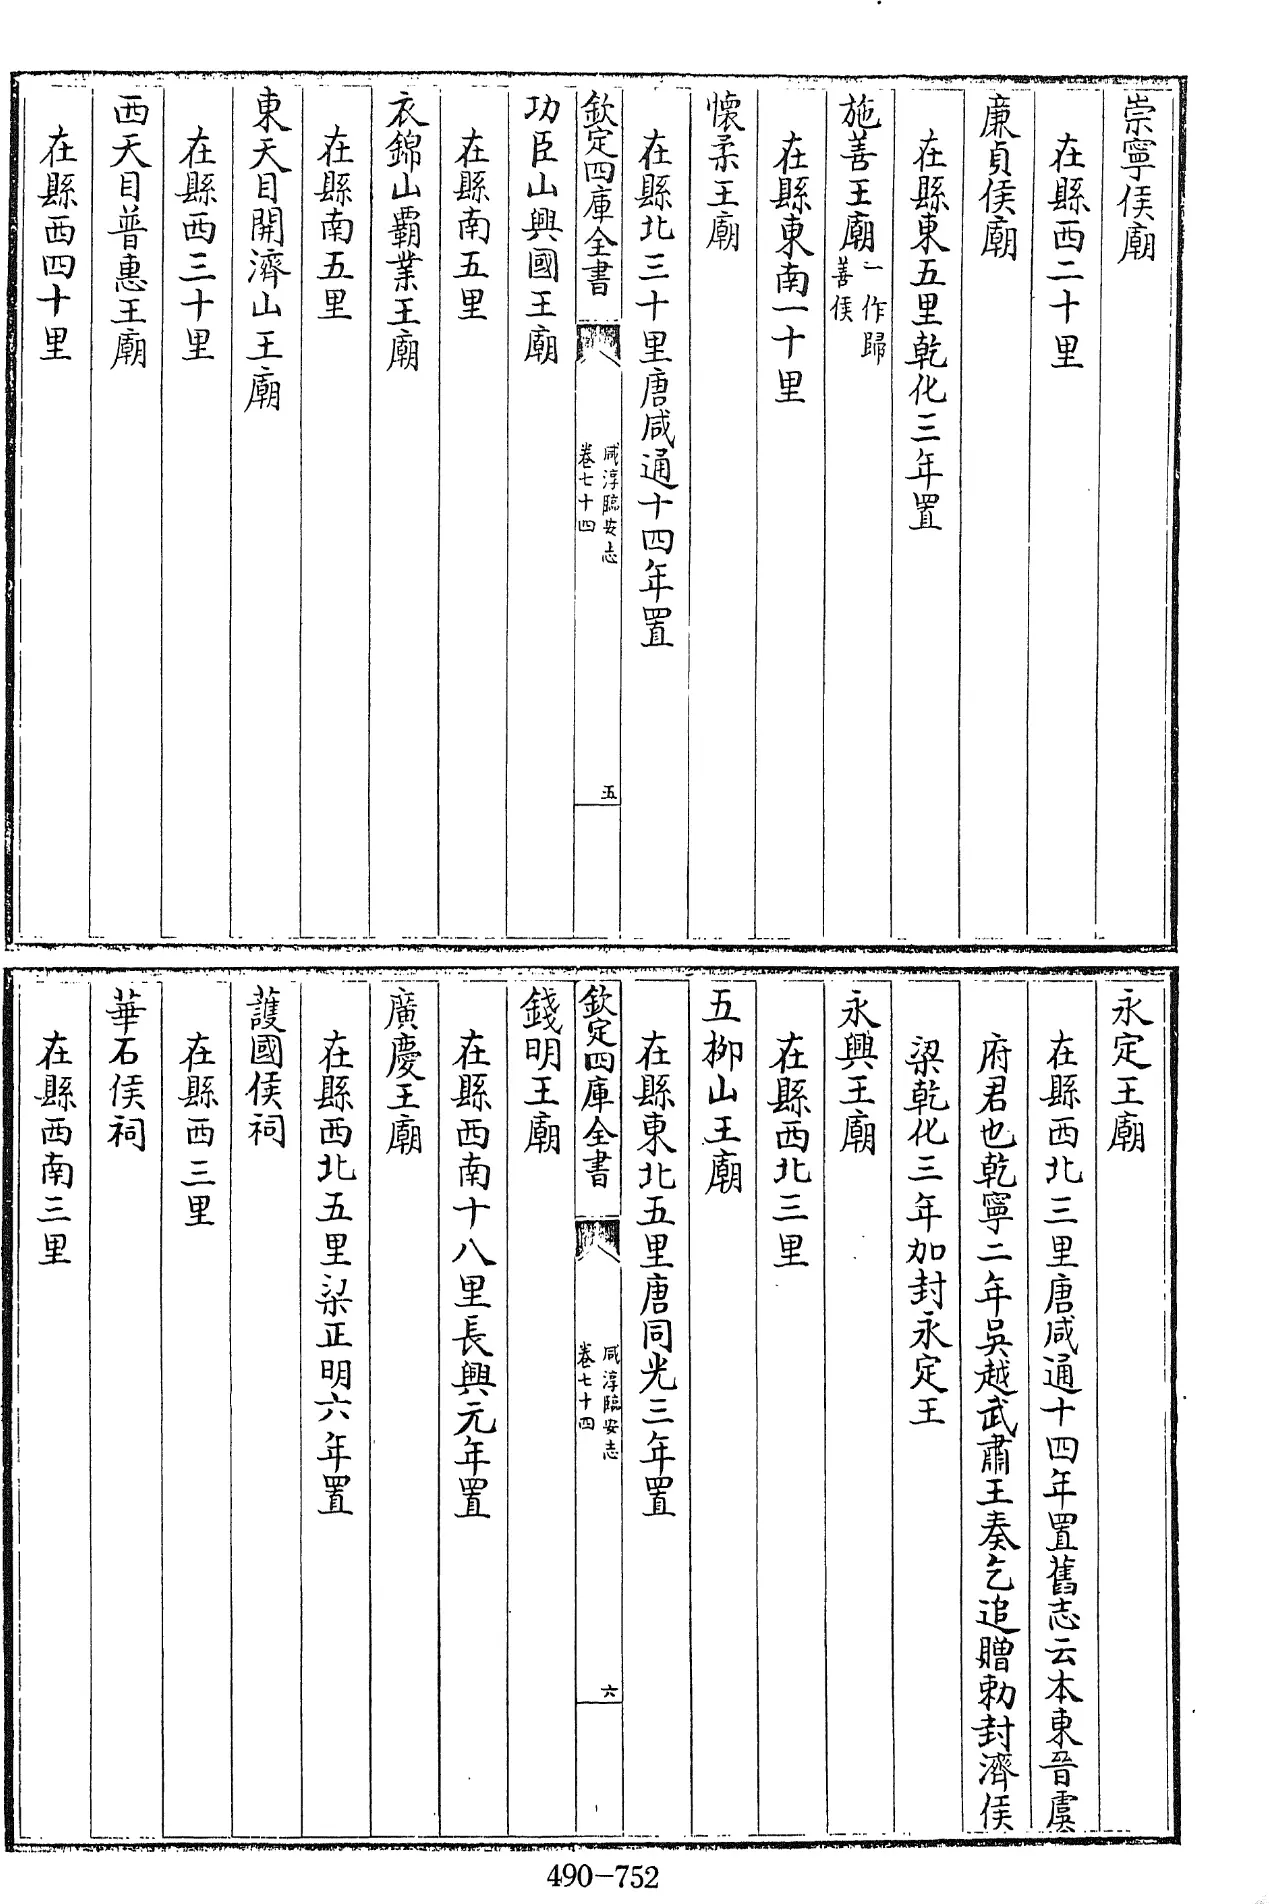 崇寧侯廟
在縣西二十里
廉貞侯廟
在縣東五里乾化三年置
施善王廟一作歸善侯
在縣東南一十里
懷柔王廟
在縣北三十里唐咸通十四年置
欽定四庫全書
咸淳臨安志
卷七十四
五
功臣山興國王廟
在縣南五里
衣錦山霸業王廟
在縣南五里
東天目開濟山王廟
在縣西三十里
西天目普惠王廟
在縣西四十里
永定王廟
在縣西北三里唐咸通十四年置舊志云本東晉虞
府君也乾寧二年吳越武肅王奏乞追贈勅封濟侯
梁乾化三年加封永定王
永興王廟
在縣西北三里
五柳山王廟
在縣東北五里唐同光三年置
欽定四庫全書
咸淳臨安志
卷七十四
六
錢明王廟
在縣西南十八里長興元年置
廣慶王廟
在縣西北五里梁正明六年置
護國侯祠
在縣西三里
華石侯祠
在縣西南三里
490-752